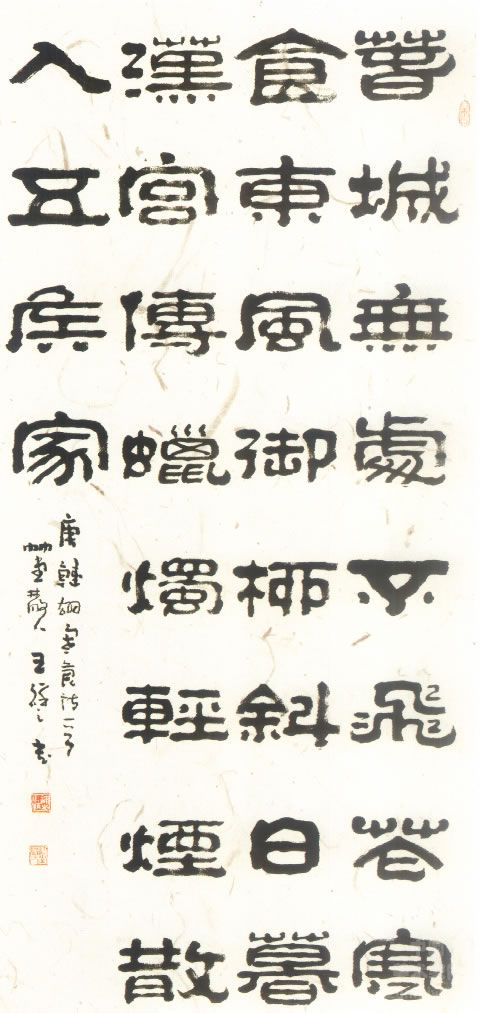 萅城無處不飛花寒
食東風御柳斜日暮
漢宮傳蠟燭輕煙散
入五侯家
唐韓翃寒食詩一首
艸堂散人王書